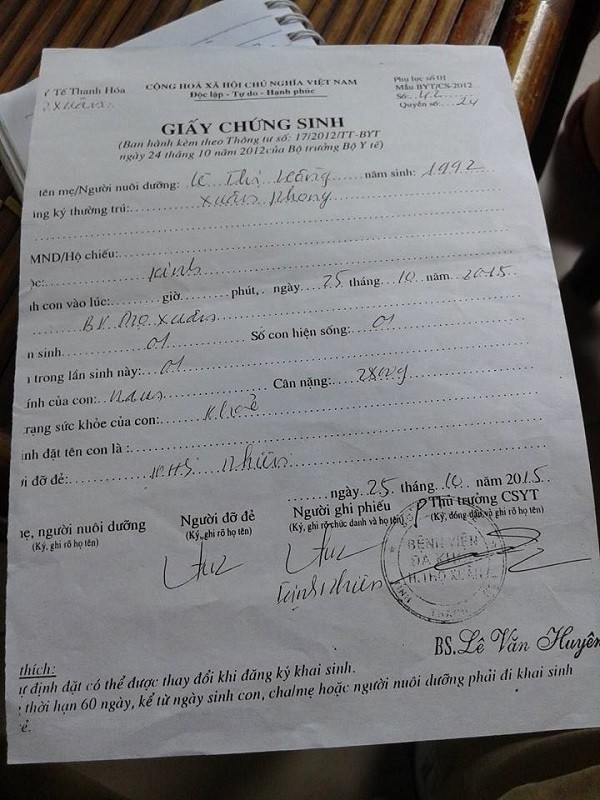 Y Tế Thanh Hóa
CỘNG HOÀ XÃ HỘI CHỦ NGHĨA VIỆT NAM
Độc lập - Tự do - Hạnh phúc
Phụ lục số 01
Mẫu BYT/CS-2012
Số: 42
Quyển số: 24
GIẤY CHỨNG SINH
(Ban hành kèm theo Thông tư số: 17/2012/TT-BYT
ngày 24 tháng 10 năm 2012của Bộ trưởng Bộ Y tế)
tên mẹ/Người nuôi dưỡng: Lê Thị năm sinh: 1992
ng ký thường trú: Xuân Phong
MND/Hộ chiếu:
ộc: Kinh
nh con vào lúc: giờ phút, ngày 25 tháng 10 năm 2015
BV Thọ Xuân
n sinh 01 Số con hiện sống: 01
n trong lần sinh này: 01
ính của con: Cân nặng:
trạng sức khỏe của con: khoẻ
nh đặt tên con là :
i đỡ đẻ: NHS Nhiên
ngày 25 tháng 10 năm 2015
mẹ, người nuôi dưỡng
(Ký, ghi rõ họ tên)
Người đỡ đẻ
(Ký, ghi rõ họ tên)
Người ghi phiếu
(Ký, ghi rõ chức danh và họ tên)
Thủ trưởng CSYT
(Ký, đóng dấu và ghi rõ họ tên)
BỆNH VIỆN
ĐA KHOA
H.THỌ XUÂN
Nhiên
BS. Lê Văn Huyên
thích:
ự định đặt có thể được thay đổi khi đăng ký khai sinh.
thời hạn 60 ngày, kể từ ngày sinh con, cha/mẹ hoặc người nuôi dưỡng phải đi khai sinh
ẻ.